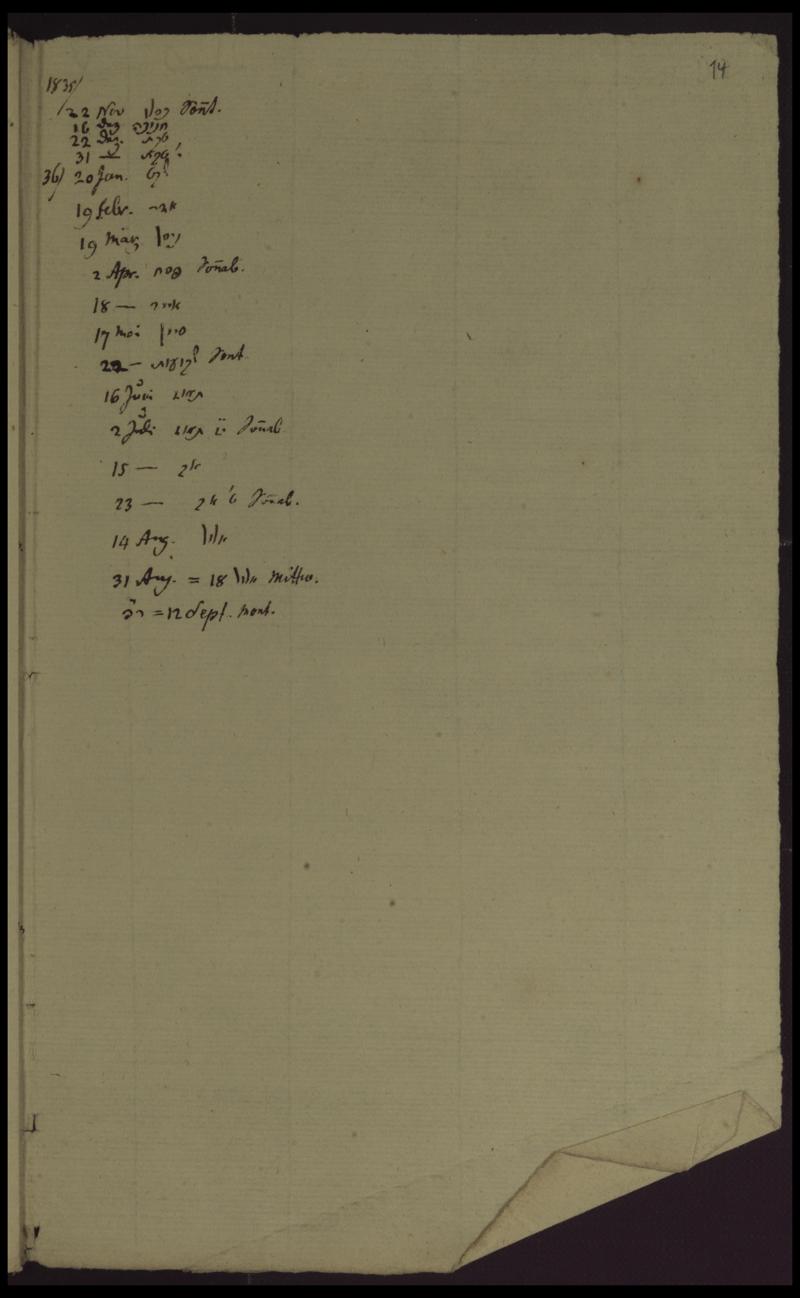 14
1835/
22 Nov כסלו Sont.
16 Dez חניכה
22 Dez. טבת
31 — י' טבת
36/ 20 Jan. שבט
19 febr. אדר
19 März ניסן
2 Apr. פסח Sonab.
18 — אייר
17 Mai סיון
22 — שבועות Sont
16 Juni תמוז
2 Juli י"ז תמוז Sonab
15 — אב
23 — ט' אב Sonab.
14 Aug. אלול
31 Aug. = 18 אלול Mittw.
ר"ה = 12 Sept. Mont.